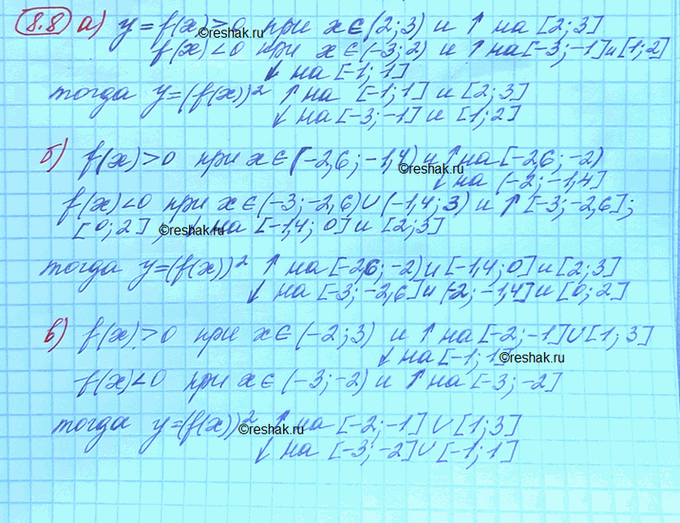 8.8 а) y = f(x) > 0 при x∈(2;3) и ↑ на [2;3]
f(x) < 0 при x∈(-3;2) и ↑ на [-3;-1] и [1;2]
↓ на [-1;1]
тогда y=(f(x))² ↑ на [-1;1] и [2;3]
↓ на [-3;-1] и [1;2]
б) f(x) > 0 при x∈(-2,6; -1,4) и ↑ на [-2,6; -2)
©reshak.ru
↓ на (-2; -1,4]
f(x) < 0 при x∈(-3; -2,6) ∪ (-1,4; 3) и ↑ [-3; -2,6];
[0; 2], ↓ на [-1,4; 0] и [2; 3]
©reshak.ru
тогда y=(f(x))² ↑ на [-2,6; -2) и [-1,4; 0] и [2; 3]
↓ на [-3; -2,6] и (-2; -1,4] и [0; 2]
в) f(x) > 0 при x∈(-2; 3) и ↑ на [-2; -1] ∪ [1; 3]
↓ на [-1; 1] ©reshak.ru
f(x) < 0 при x∈(-3; -2) и ↑ на [-3; -2]
тогда y=(f(x))² ↑ на [-2; -1] ∪ [1; 3]
©reshak.ru
↓ на [-3; -2] ∪ [-1; 1]